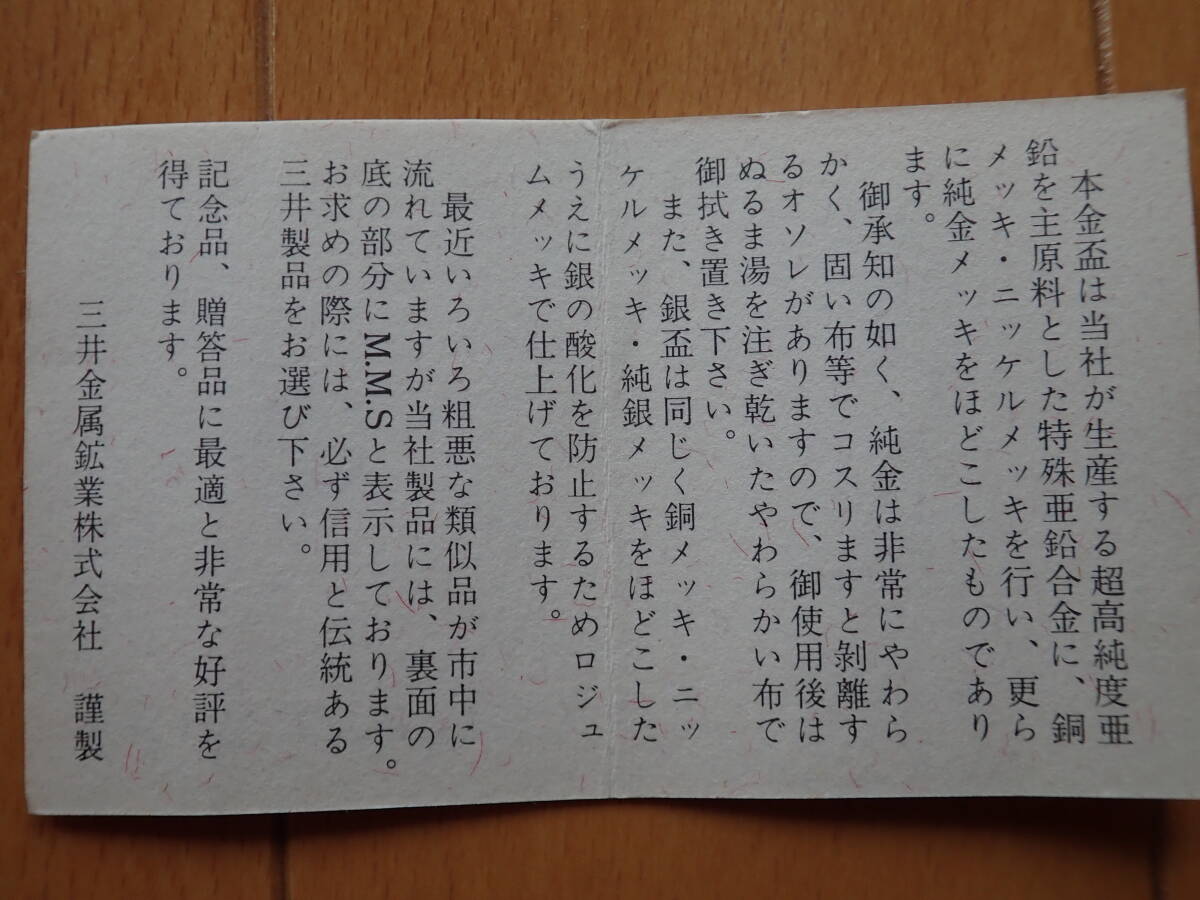 本金盃は当社が生産する超高純度亜
鉛を主原料とした特殊亜鉛合金に、銅
メッキ・ニッケルメッキを行い、更ら
に純金メッキをほどこしたものであり
ます。
御承知の如く、純金は非常にやわら
かく、固い布等でコスリますと剝離す
るオソレがありますので、御使用後は
ぬるま湯を注ぎ乾いたやわらかい布で
御拭き置き下さい。
また、銀盃は同じく銅メッキ・ニッ
ケルメッキ・純銀メッキをほどこした
うえに銀の酸化を防止するためロジュ
ムメッキで仕上げております。
最近いろいろ粗悪な類似品が市中に
流れていますが当社製品には、裏面の
底の部分にM.M.Sと表示しております。
お求めの際には、必ず信用と伝統ある
三井製品をお選び下さい。
記念品、贈答品に最適と非常な好評を
得ております。
三井金属鉱業株式会社 謹製